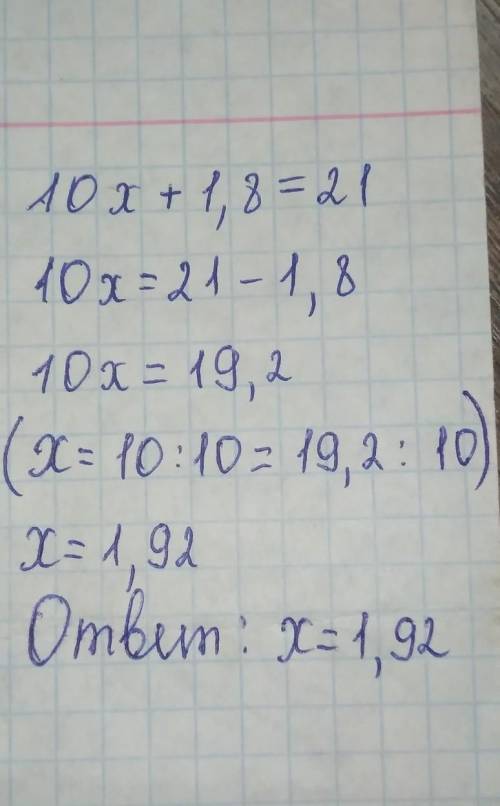 10x + 1,8 = 21
10x = 21 - 1,8
10x = 19,2
(x = 10 : 10 = 19,2 : 10)
x = 1,92
Ответ: x = 1,92